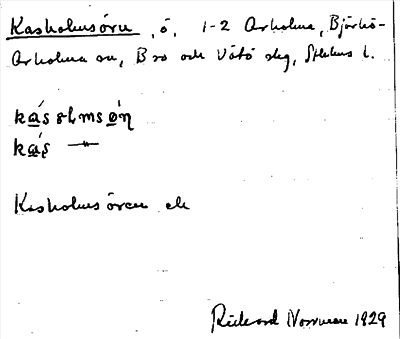 Kasholmsören, ö, 1-2 Arholma, Björkö-
Arholma sn, Bro och Vätö skg, Sthlms l.
ká̱s ɵlmsǿ̱n
ká̱s
Kasholmsören ek
Rickard Norrman 1929